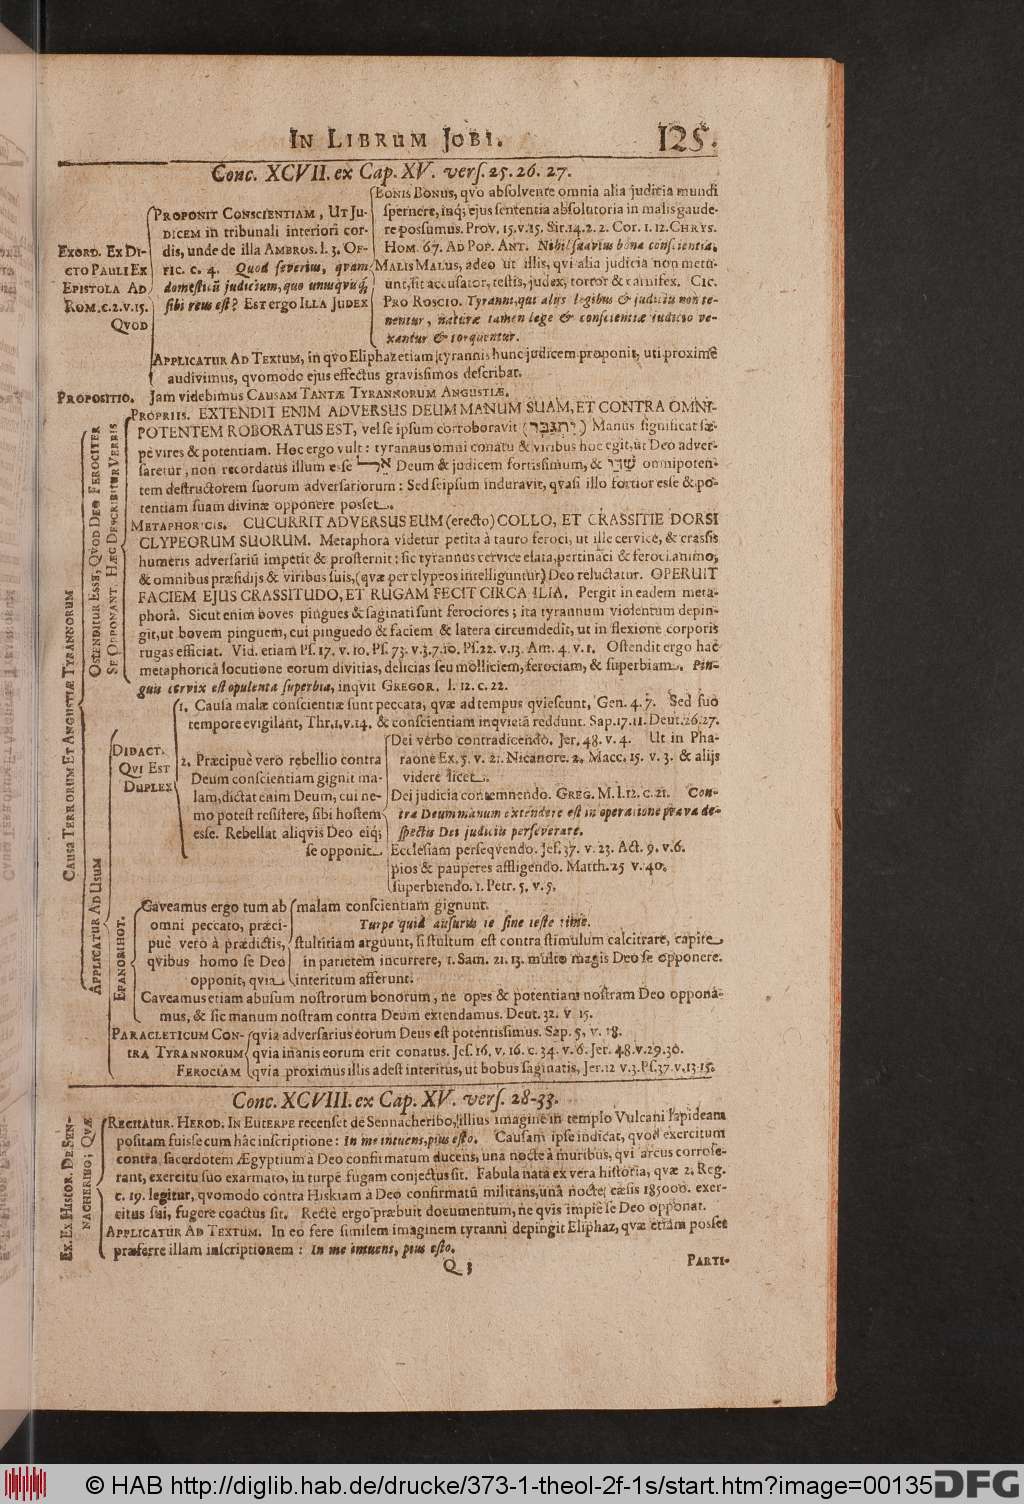 IN LIBRUM JOBI. 125.
Conc. XCVII. ex Cap. XV. vers. 25. 26. 27.
EXORD. EX DI-
CTO PAULI EX
EPISTOLA AD
ROM. c. 2. v. 15.
QVOD
PROPONIT CONSCIENTIAM, UT JU-
DICEM in tribunali interiori cor-
dis, unde de illa AMBROS. l. 3. OF-
FIC. c. 4. Quod severius, qvam
domesticũ judicium, quo unusqvisq́,
sibi reus est? EST ergo ILLA JUDEX
BONIS BONUS, qvo absolvente omnia alia judicia mundi
spernere, inq́; ejus sententia absolutoria in malis gaude-
re possumus. Prov. 15. v. 15. Sir. 14. 2. 2. Cor. 1. 12. CHRYS.
HOM. 67. AD POP. ANT. Nihil suavius bona conscientia.
MALIS MALUS, adeo ut illis, qvi alia judicia non metu-
unt, sit accusator, testis, judex, tortor & carnifex. CIC.
PRO ROSCIO. Tyranni, qui alijs legibus & judiciis non te-
nentur, naturæ tamen lege & conscientiæ judicio ve-
xantur & torquentur.
APPLICATUR AD TEXTUM, in qvo Eliphaz etiam tyrannis hunc judicem proponit, uti proxime
audivimus, qvomodo ejus effectus gravissimos describat.
PROPOSITIO. Jam videbimus CAUSAM TANTÆ TYRANNORUM ANGUSTIÆ.
CAUSA TERRORUM ET ANGUSTIÆ TYRANNORUM
OSTENDITUR ESSE, QVOD DEO FEROCITER
SE OPPONANT. HÆC DESCRIBITUR VERBIS
PROPRIIS. EXTENDIT ENIM ADVERSUS DEUM MANUM SUAM, ET CONTRA OMNI-
POTENTEM ROBORATUS EST, vel se ipsum corroboravit (יתגבר) Manus significat sæ-
pe vires & potentiam. Hoc ergo vult: tyrannus omni conatu & viribus hoc egit, ut Deo adver-
saretur, non recordatus illum esse אל Deum & judicem fortissimum, & שדי omnipoten-
tem destructorem suorum adversariorum: Sed seipsum induravit, qvasi illo fortior esse & po-
tentiam suam divinæ opponere posset.
METAPHORICIS. CUCURRIT ADVERSUS EUM (erecto) COLLO, ET CRASSITIE DORSI
CLYPEORUM SUORUM. Metaphora videtur petita à tauro feroci, ut ille cervice, & crassis
humeris adversariũ impetit & prosternit: sic tyrannus cervice elata, pertinaci & feroci animo,
& omnibus præsidijs & viribus suis, (qvæ per clypeos intelliguntur) Deo reluctatur. OPERUIT
FACIEM EJUS CRASSITUDO, ET RUGAM FECIT CIRCA ILIA. Pergit in eadem meta-
phorâ. Sicut enim boves pingues & saginati sunt ferociores; ita tyrannum violentum depin-
git, ut bovem pinguem, cui pinguedo & faciem & latera circumdedit, ut in flexione corporis
rugas efficiat. Vid. etiam Ps. 17. v. 10. Ps. 73. v. 3. 7. 10. Ps. 22. v. 13. Am. 4. v. 1. Ostendit ergo hac
metaphorica locutione eorum divitias, delicias seu molliciem, ferociam, & superbiam. Pin-
guis cervix est opulenta superbia, inqvit GREGOR. l. 12. c. 22.
APPLICATUR AD USUM
DIDACT.
QVI EST
DUPLEX
1. Causa malæ conscientiæ sunt peccata, qvæ ad tempus qviescunt, Gen. 4. 7. Sed suo
tempore evigilant, Thr. 1. v. 14. & conscientiam inqvietã reddunt. Sap. 17. 11. Deut. 26. 27.
2. Præcipuè verò rebellio contra
Deum conscientiam gignit ma-
lam, dictat enim Deum, cui ne-
mo potest resistere, sibi hostem
esse. Rebellat aliqvis Deo eiq́;
se opponit
Dei verbo contradicendo. Jer. 48. v. 4. Ut in Pha-
raone Ex. 5. v. 21. Nicanore. 2. Macc. 15. v. 3. & alijs
videre licet.
Dei judicia contemnendo. GREG. M. l. 12. c. 21. Con-
tra Deum manum extendere est in operatione prava de-
spectis Dei judiciis perseverare.
Ecclesiam perseqvendo. Jes. 37. v. 23. Act. 9. v. 6.
pios & pauperes affligendo. Matth. 25 v. 40.
superbiendo. 1. Petr. 5. v. 5.
EPANORTHOT.
Caveamus ergo tum ab
omni peccato, præci-
puè vero à prædictis,
qvibus homo se Deo
opponit, qvia
malam conscientiam gignunt.
Turpe quid ausurus te sine teste time.
stultitiam arguunt, si stultum est contra stimulum calcitrare, capite
in parietem incurrere, 1. Sam. 21. 13. multo magis Deo se opponere.
interitum afferunt.
Caveamus etiam abusum nostrorum bonorum, ne opes & potentiam nostram Deo oppona-
mus, & sic manum nostram contra Deum extendamus. Deut. 32. v 15.
PARACLETICUM CON-
TRA TYRANNORUM
FEROCIAM
qvia adversarius eorum Deus est potentissimus. Sap. 5. v. 18.
qvia inanis eorum erit conatus. Jes. 16. v. 16. c. 34. v. 6. Jer. 48. v. 29. 30.
qvia proximus illis adest interitus, ut bobus saginatis, Jer. 12 v. 3. Ps. 37. v. 13. 15.
Conc. XCVIII. ex Cap. XV. vers. 28-33.
EX. EX HISTOR. DE SEN-
NACHERIBO; QVÆ
RECITATUR. HEROD. IN EUTERPE recenset de Sennacheribo, illius imaginẽ in templo Vulcani lapideam
positam fuisse cum hâc inscriptione: In me intuens, pius esto. Causam ipse indicat, qvod exercitum
contra sacerdotem Ægyptium à Deo confirmatum ducens, una nocte à muribus, qvi arcus corrose-
rant, exercitu suo exarmato, in turpẽ fugam conjectus sit. Fabula nata ex vera historia, qvæ 2. Reg.
c. 19. legitur, qvomodo contra Hiskiam à Deo confirmatũ militans, unâ nocte cæsis 185000. exer-
citus sui, fugere coactus sit. Rectè ergo præbuit documentum, ne qvis impiè se Deo opponat.
APPLICATUR AD TEXTUM. In eo fere similem imaginem tyranni depingit Eliphaz, qvæ etiam posset
præferre illam inscriptionem: In me intuens, pius esto.
Q 3
PARTI-
© HAB http://diglib.hab.de/drucke/373-1-theol-2f-1s/start.htm?image=00135
DFG